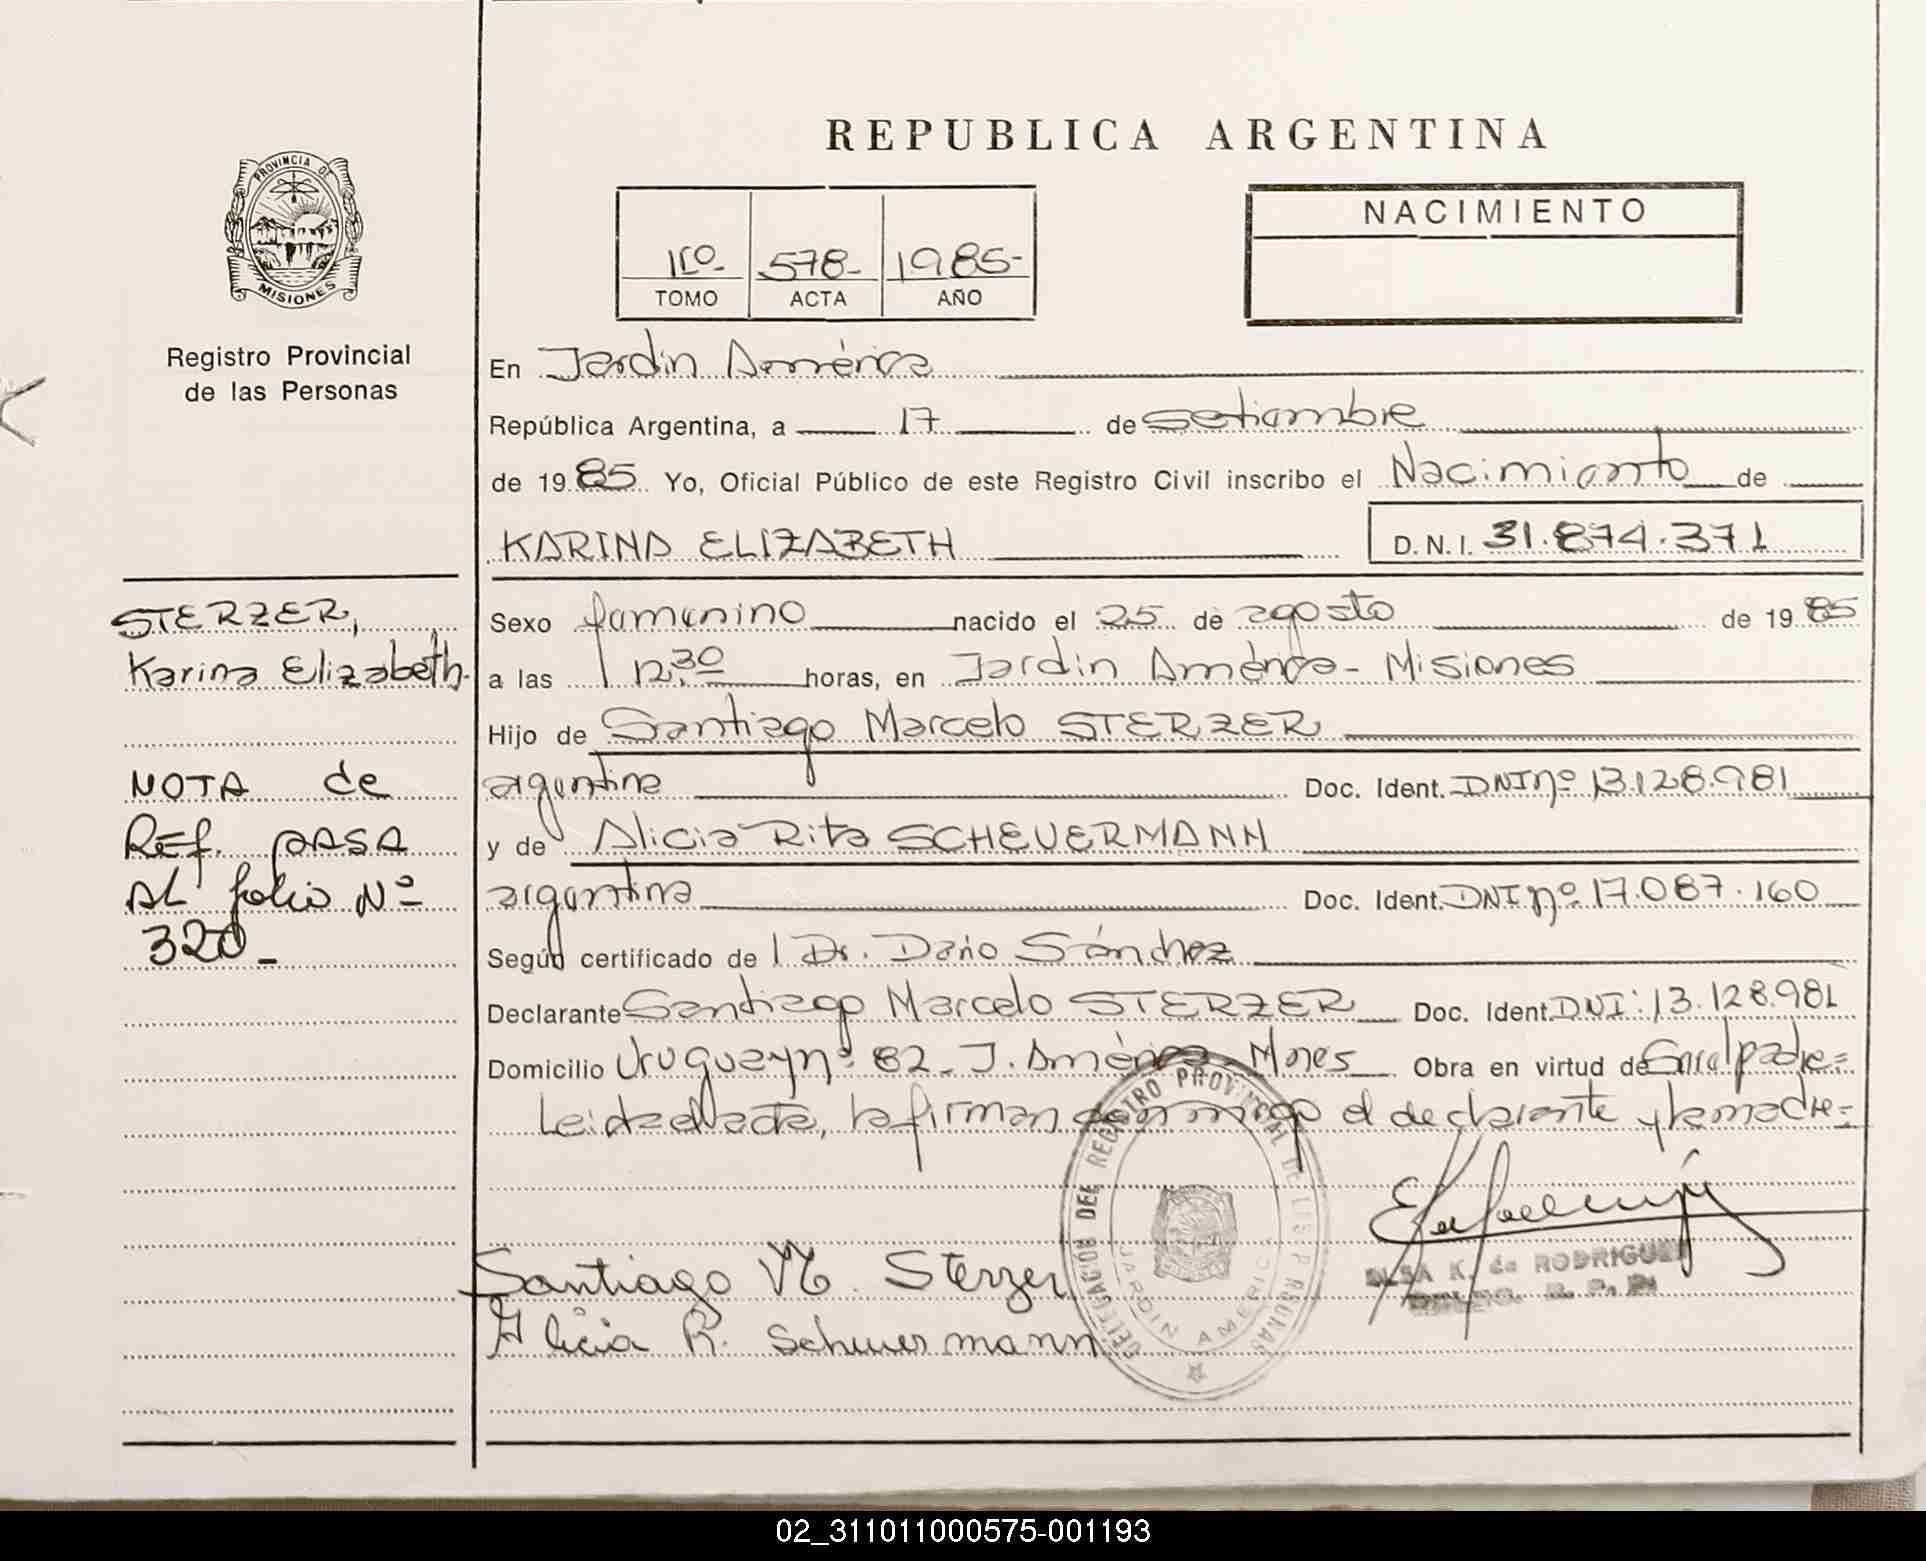 REPUBLICA ARGENTINA
PROVINCIA DE
MISIONES
Registro Provincial
de las Personas
1ro- 578- 1985-
TOMO ACTA AÑO
NACIMIENTO
En Jardin América
República Argentina, a 17 de setiembre
de 1985 Yo, Oficial Público de este Registro Civil inscribo el Nacimiento de
KARINA ELIZABETH D.N.I. 31.874.371
STERZER,
Karina Elizabeth.
NOTA de
REf. pASA
AL folio Nº
320_
Sexo femenino nacido el 25 de agosto de 1985
a las 12,30 horas, en Jardin América - Misiones
Hijo de Santiago Marcelo STERZER
argentina Doc. Ident. DNI nº 13.128.981
y de Alicia Rita SCHEUERMANN
argentina Doc. Ident. DNI nº 17.087.160
Según certificado de Dr. Dario Sánchez
Declarante Santiago Marcelo STERZER Doc. Ident. DNI: 13.128.981
Domicilio Uruguay nº 82_ J. América Mnes Obra en virtud de Ser el padre=
Leida el acta, la firman conmigo el declarante y la madre=
Santiago M. Sterzer
Alicia R. Scheuermann
DELEGACIO DEL REGISTRO PROVINCIAL DE LAS PERSONAS
JARDIN AMERICA
ELSA K. de RODRIGUEZ
R. P. P.
02_311011000575-001193